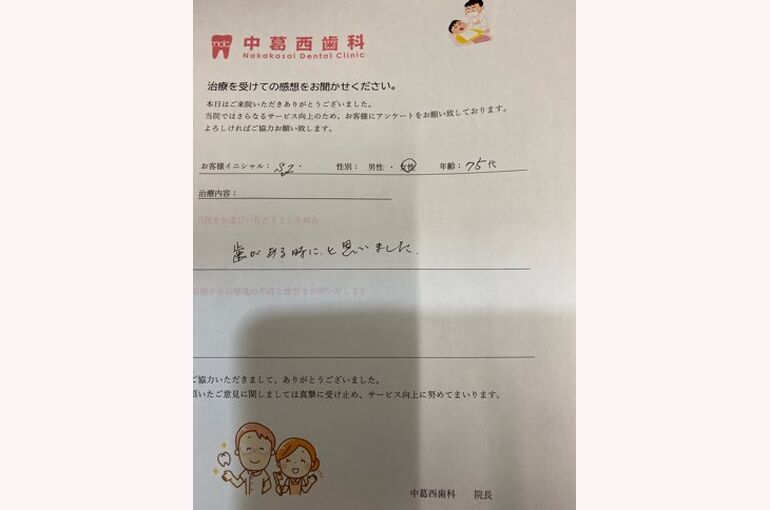 mdc 中葛西歯科
Nakakasai Dental Clinic
治療を受けての感想をお聞かせください。
本日はご来院いただきありがとうございました。
当院ではさらなるサービス向上のため、お客様にアンケートをお願い致しております。
よろしければご協力お願い致します。
お客様イニシャル： 性別： 男性 ・ 女性 年齢：75代
治療内容：
当院をお選びいただきました理由
歯がある時に、と思いました。
治療中や治療後の率直な感想をお願い致します
ご協力いただきまして、ありがとうございました。
頂いたご意見に関しましては真摯に受け止め、サービス向上に努めてまいります。
中葛西歯科 院長